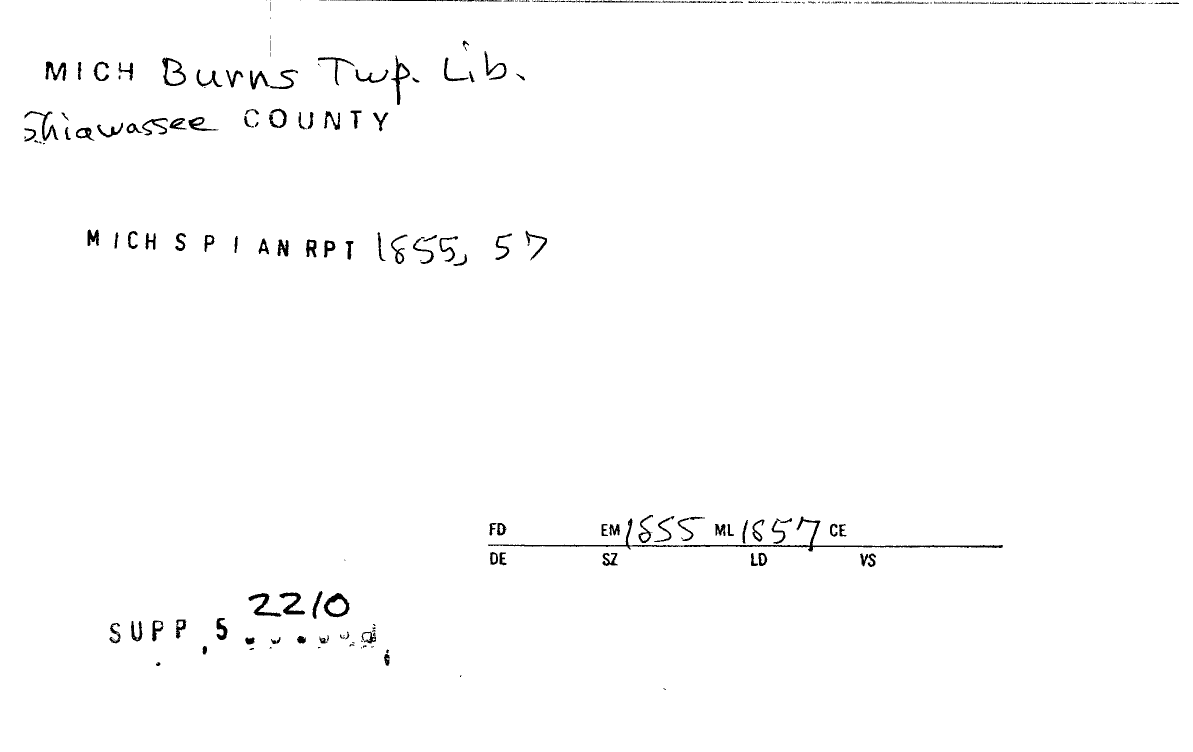 MICH Burns Twp. Lib.
Shiawassee COUNTY
MICH S P I AN RPT 1855, 57
FD EM 1855 ML 1857 CE
DE SZ LD VS
2210
SUPP, 5